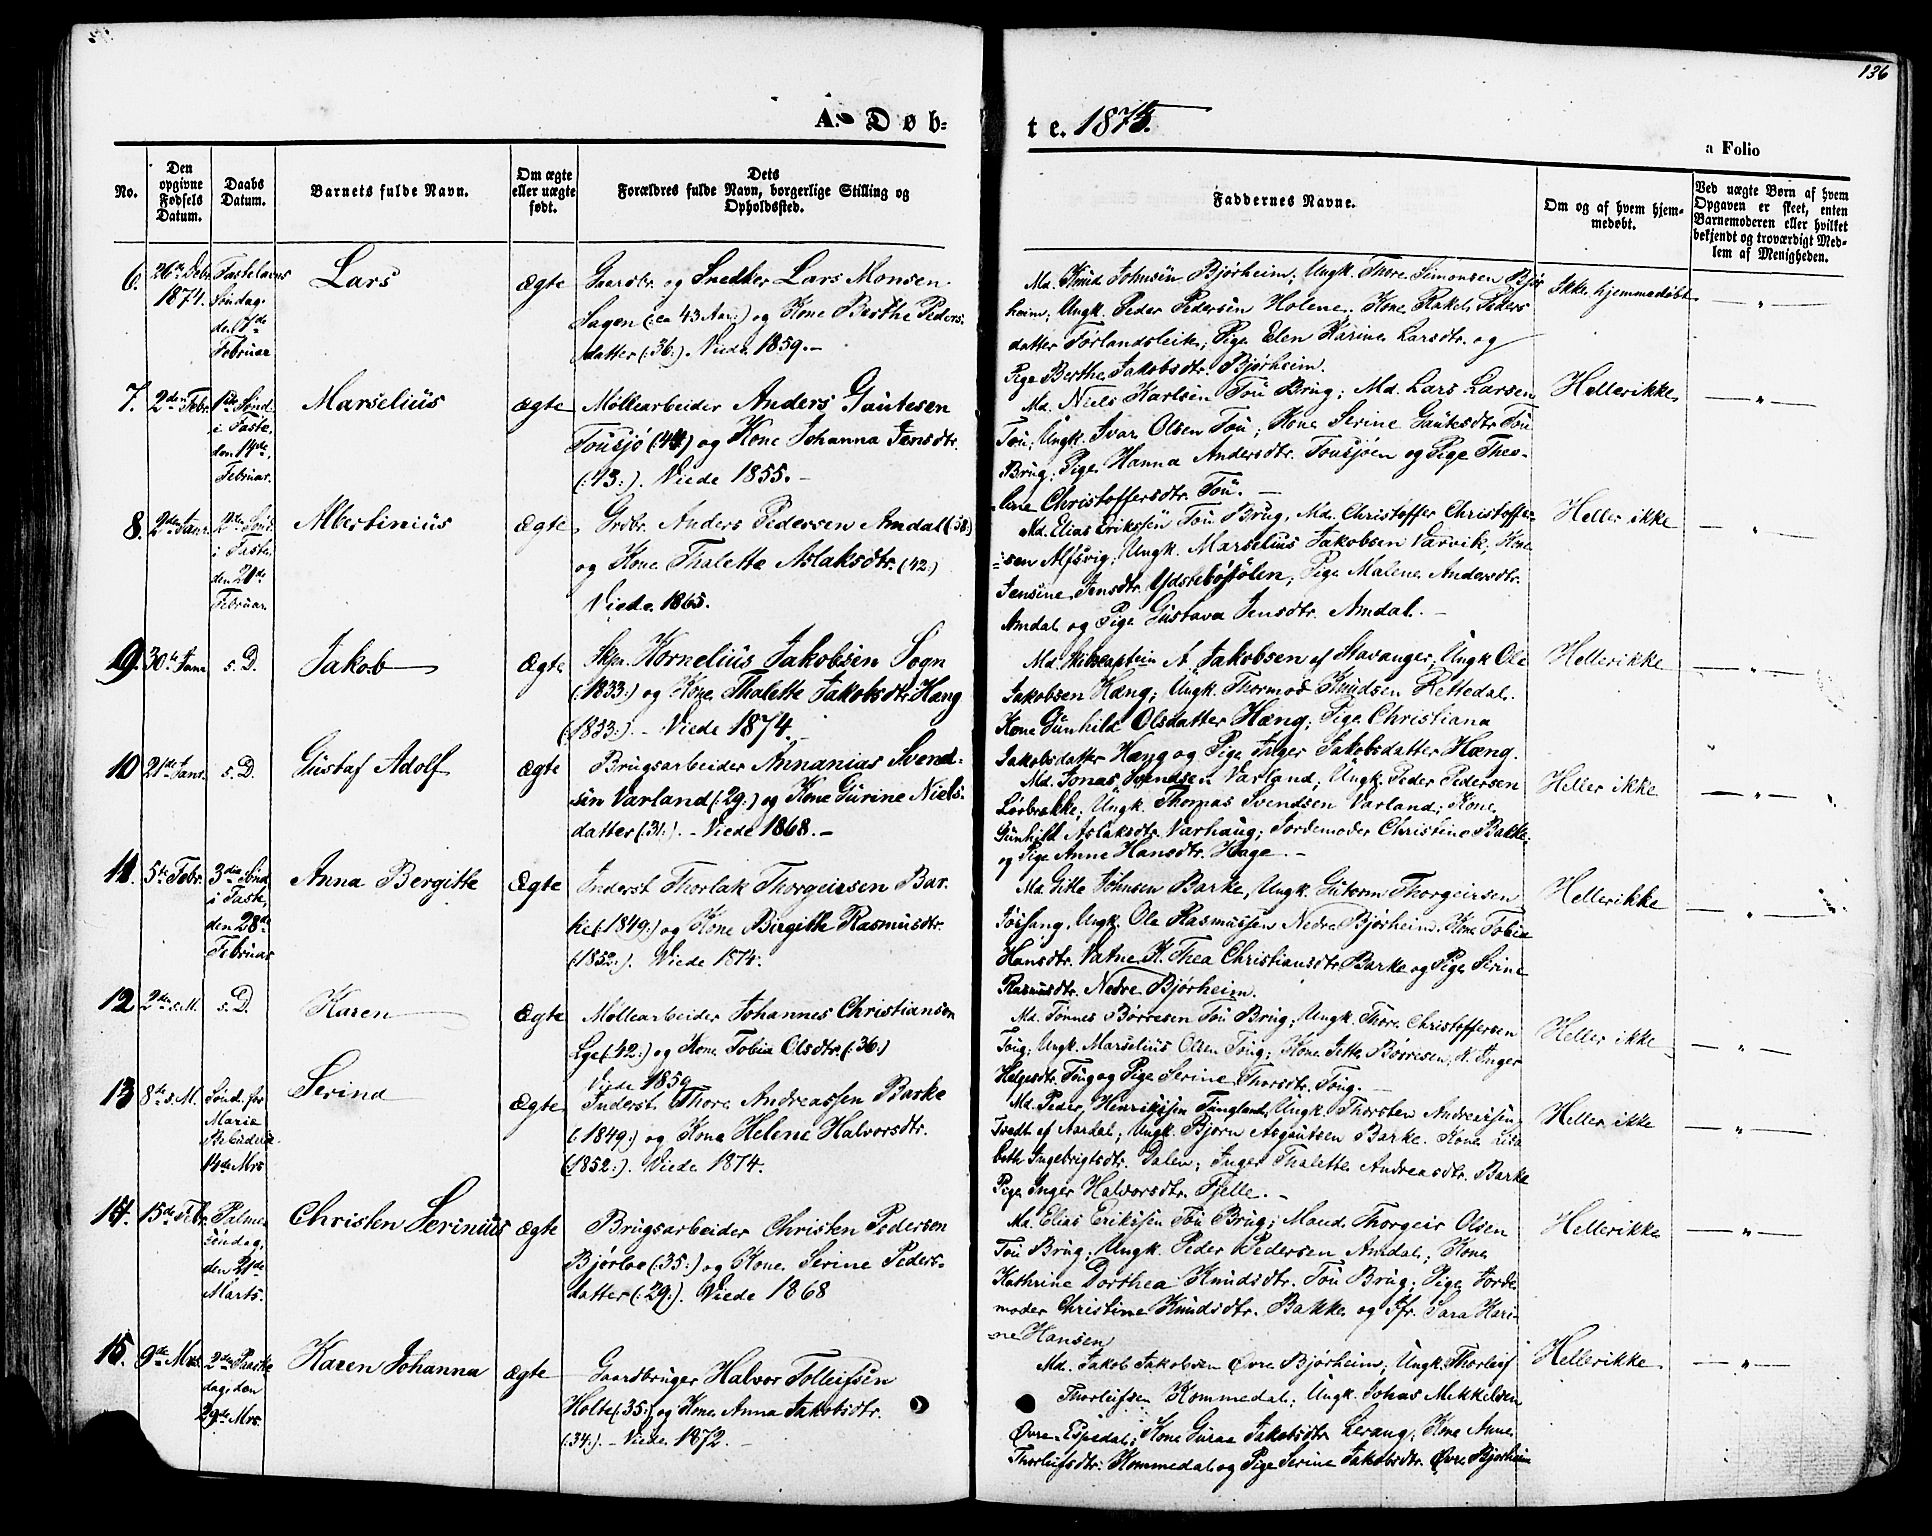 136
A. Døb-
te. 1875.
a Folio
No.
Den opgivne Fødsels Datum.
Daabs Datum.
Barnets fulde Navn.
Om ægte eller uægte født.
Dets Forældres fulde Navn, borgerlige Stilling og Opholdssted.
Faddernes Navne.
Om og af hvem hjemmedøbt.
Ved uægte Børn af hvem Opgaven er skeet, enten Barnemoderen eller hvilket bekjendt og troværdigt Medlem af Menigheden.
6. 26de Debr. 1874. Fastelavns Søndag den 7de Februar Lars Ægte
Gaardbr. og Snedker Lars Monsen
Sagen (:ca 43 Aar:) og Kone Berthe Peders-
datter (:36:). Viede 1859.-
Md. Knud Johnsen Bjørheim; Ungk. Thore Simonsen Bjør-
heim; Ungk. Peder Pedersen Holene. Kone Rakel Peders
datter Førlandsleite; Pige Elen Karine Larsdtr. og
Pige Berthe Jakobsdtr. Bjørheim.
Ikke hjemmedøbt — " —
7. 2den Febr. 1ste Sønd. i Faste, den 14de Februar. Marselius ægte
Møllearbeider Anders Gautesen
Tousjø (44) og Kone Johanna Jensdtr.
(:43:). Viede 1855.-
Md. Niels Karlsen Tou Brug; Md. Lars Larsen
Tou; Ungk. Ivar Olsen Tou; Kone Serine Gautesdtr. Tou
Brug; Pige Hanna Andersdtr. Tousjøen og Pige Theo-
line Christoffersdtr. Tou.-
Heller ikke — " —
8. 2den Janr. 2den Sønd. i Faste. den 21de Februar. Albertinius Ægte
Grdbr. Anders Pedersen Amdal (38:)
og Kone Thalette Aslaksdtr. (42:)
Viede 1865.
Md. Elias Eriksen Tou Brug, Md. Christoffer Christoffer-
sen Alfsvig; Ungk. Marselius Jakobsen Varvik; Kone
Jensine Jensdtr. Ydstebøstølen; Pige Malene Andersdtr.
Amdal og Pige Gustava Jensdtr. Amdal.-
Heller ikke — " —
9. 30te Janr s. D. Jakob Ægte
Skpr. Kornelius Jakobsen Sogn
(1833:) og Kone Thalette Jakobsdtr. Hæng
(1833:).- Viede 1874.
Md. Skibscaptein A. Jakobsen af Stavanger; Ungk Ole
Jakobsen Hæng; Ungk. Thormod Knudsen Rettedal.
Kone Gunhild Olsdatter Hæng; Pige Christiana
Jakobsdatter Hæng og Pige Inger Jakobsdatter Hæng.
Heller ikke — " —
10 21de Janr. s. D. Gustaf Adolf Ægte
Brugsarbeider Annanias Svend-
sen Varland (:29:) og Kone Gurine Niels-
datter (:31:).- Viede 1868.-
Md. Jonas Svendsen Varland; Ungk. Peder Pedersen
Lørbrekke; Ungk. Thomas Svendsen Varland; Kone
Gunhild Aslaksdtr. Varhaug; Jordemoder Christine Bakke
og Pige Anne Hansdtr. Hage.-
Heller ikke — " —
11. 5te Febr. 3die Sønd. i Faste, den 28de Februar Anna Bergitte Ægte
Inderst Thorlak Thorgeirsen Bar-
ke (:1849:) og Kone Birgitte Rasmusdtr.
(:1852:). Viede 1874.
Md. Gitle Johnsen Barke, Ungk. Gutorm Thorgeirsen
Jøssang, Ungk. Ole Rasmussen Nedre Bjørheim. Kone Tobia
Hansdtr. Vatne, K. Thea Christiansdtr. Barke og Pige Serine
Rasmusdtr. Nedre Bjørheim.
Heller ikke — " —
12 2den s. M. s. D. Karen Ægte
Møllearbeider Johannes Christiansen
Lge (:42:) og Kone Tobia Olsdtr. (:36:)
Viede 1859
Md. Tønnes Børresen Tou Brug; Ungk. Thore Christoffersen
Toug; Ungk. Marselius Olsen Toug; Kone Jette Børresen; K. Inger
Helgesdtr. Toug og Pige Serine Thorsdtr. Toug.-
Heller ikke — " —
13 8de s. M. Sønd. for Maria Bebudelse 14de Mrs. Serina Ægte
Inderst Thore Andreassen Barke
(:1849:) og Kone Helene Halvorsdtr.
(:1852:). Viede 1874.
Md. Peder Henriksen Tungland, Ungk. Thorsten Andreassen
Tvedt af Aardal; Ungk. Bjørn Asgautsen Barke. Kone Lisa
beth Ingebrigtsdtr. Dalen; Inger Thalette Andreasdtr. Barke
Pige Inger Halvorsdtr. Fjelle.-
Heller ikke — " —
14. 15de Febr. Palme søndag, den 21de Marts. Christen Serinius ægte
Brugsarbeider Christen Pedersen
Bjørloe (:35:) og Kone Serine Peders-
datter (:29:). Viede 1868
Md. Elias Eriksen Tou Brug; Mand Thorgeir Olsen
Tou Brug; Ungk. Peder Pedersen Amdal; Kone
Kathrine Dorthea Knudsdtr. Tou Brug; Pige Jorde
moder Christine Knudsdtr. Bakke og Jfr. Sara Kari-
ne Hansen
Heller ikke — " —
15. 9de Mrs. 2den Paaske dag, den 29de Mrs. Karen Johanna ægte
Gaardbruger Halvor Tolleifsen
Holte (:35:) og Kone Anna Jakobsdtr.
(:34:).- Viede 1872.-
Md. Jakob Jakobsen Øvre Bjørheim; Ungk. Thorleif
Thorleifsen Kommedal; Ungk. Johas Mikkelsen
Øvre Espedal; Kone Guroe Jakobsdtr. Lerang; Kone Anne
Thorleifsdtr. Kommedal og Pige Serine Jakobsdtr. Øvre Bjørheim
Heller ikke — " —